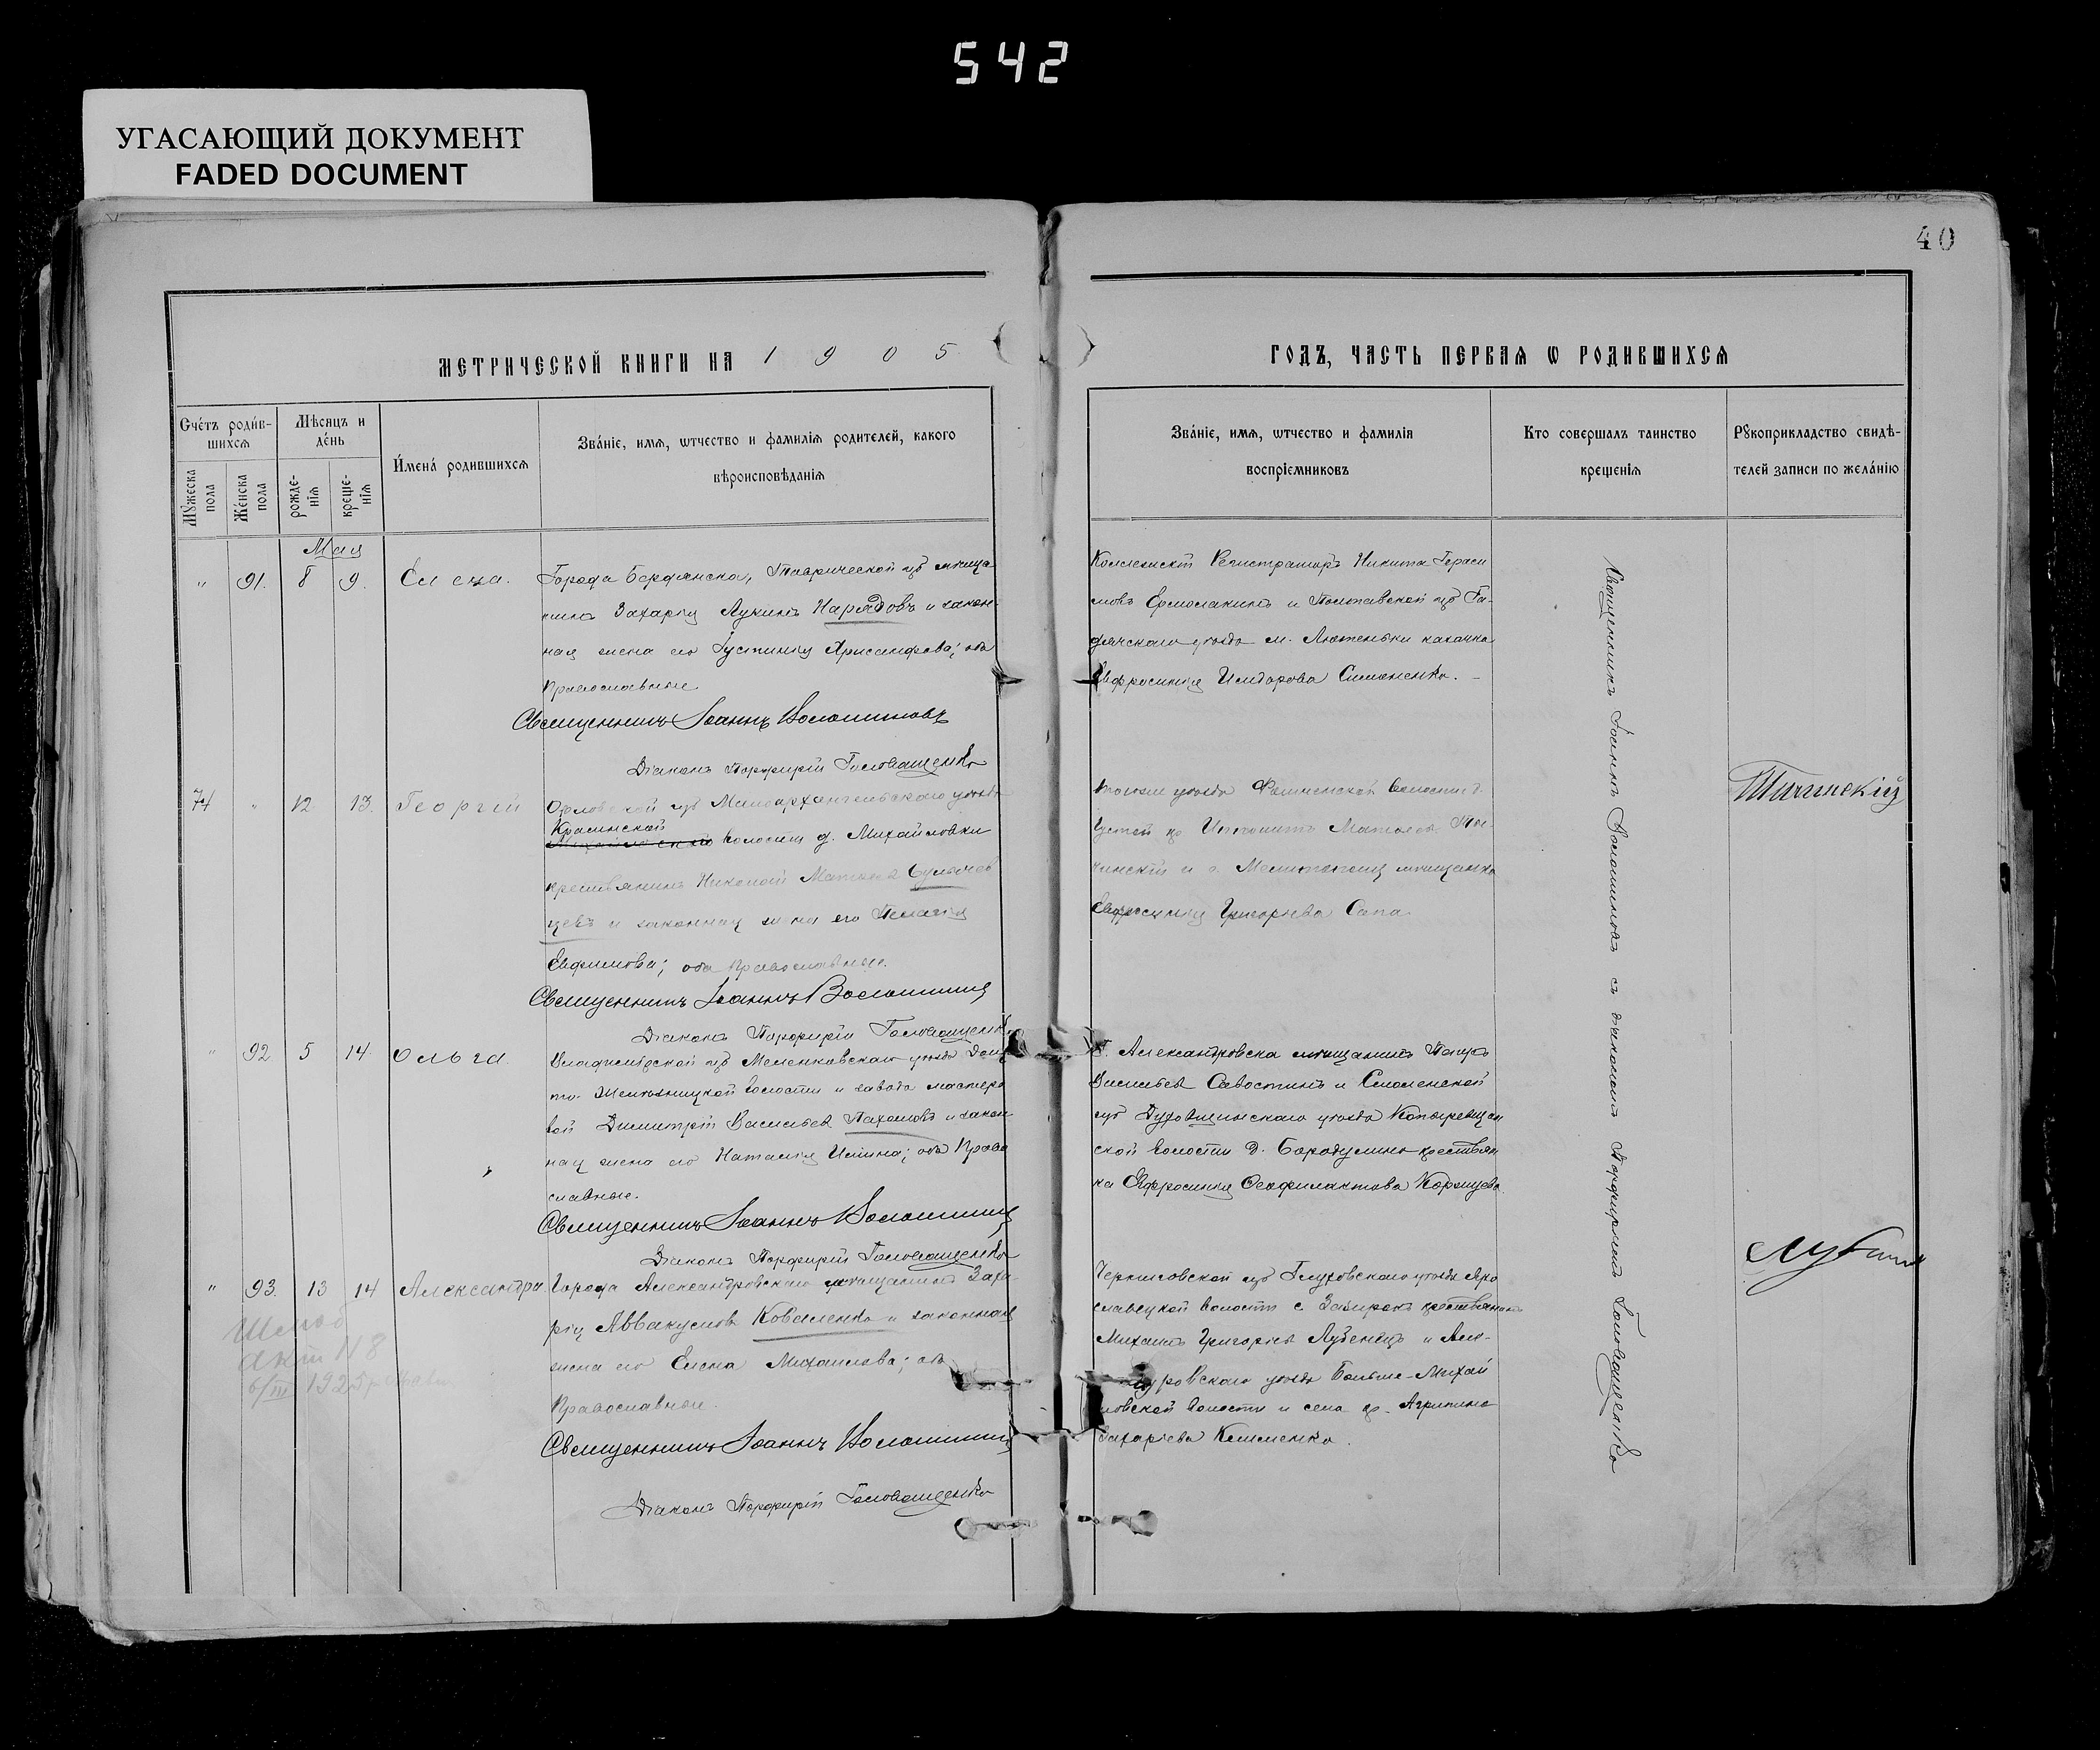 542
УГАСАЮЩИЙ ДОКУМЕНТ
FADED DOCUMENT
40
МЕТРИЧЕСКОЙ КНИГИ НА 1905
ГОДЪ, ЧАСТЬ ПЕРВАЯ Ѡ РОДИВШИХСЯ
Счетъ родив-
шихся
Мужеска пола
Женска пола
Мѣсяцъ и
день
рожде-
нія
креще-
нія
Имена родившихся
Званіе, имя, ѡтчество и фамилія родителей, какого
вѣроисповѣданія
Званіе, имя, ѡтчество и фамилія
воспріемниковъ
Кто совершалъ таинство
крещенія
Рукоприкладство свидѣ-
телей записи по желанію
Мая
" 91. 8 9. Елена.
Города Бердянска, Таврической губ мѣща
нинъ Захарій Лукинъ Нарядовъ и закон-
ная жена его Іустинія Хрисанфова; оба
православные
Священникъ Іоаннъ Волошиновъ
Діаконъ Порфирій Головащенко
Коллежскій Регистраторъ Никита Гераси
мовъ Ермолакинъ и Полтавской губ Га-
дячскаго уѣзда м. Лютеньки казачка
Евфросинія Исидорова Симоненко. -
74 " 12 13. Георгій
Орловской губ Малоархангельскаго уѣзда
Красинской
волости д. Михайловки
крестьянинъ Николай
и законная жена его Пелагія
Евфимова; оба православные.
Священникъ Іоаннъ Волошинов
Діаконъ Порфирій Головащенко
уѣзда волости д.
кр Ипполитъ
и г. Мелитополя мѣщанка
Евфросинія Григорьева Сапа.
" 92. 5 14. Ольга
Владимірской губ Меленковскаго уѣзда
волости и завода мастеро
вой Димитрій Васильев Пахомовъ и закон
ная жена его Наталія Ильина; оба право
славные.
Священникъ Іоаннъ Волошинов
Діаконъ Порфирій Головащенко
Г. Александровска мѣщанинъ
Васильев Савостинъ и Смоленской
губ Духовщинскаго уѣзда
ской волости д. Бородулино крестьян
ка Евфросинія Феофилактова
" 93. 13 14 Александра
Города Александровскаго мѣщанинъ Заха-
рій Аввакумов Коваленко и законная
жена его Елена Михаилова; оба
Православные.
Священникъ Іоаннъ Волошинов
Діаконъ Порфирій Головащенко
Черниговской губ Глуховскаго уѣзда Яро
славецкой волости с. крестьянинъ
Михаилъ Григорьев Лубенецъ и Але-
уѣзда Больше-Михай
ловской волости и села кр. Агрипина
Захаріева Клименко.
Священникъ Іоаннъ Волошиновъ съ діакономъ Порфиріемъ Головащенко
акт 118
6/III 192